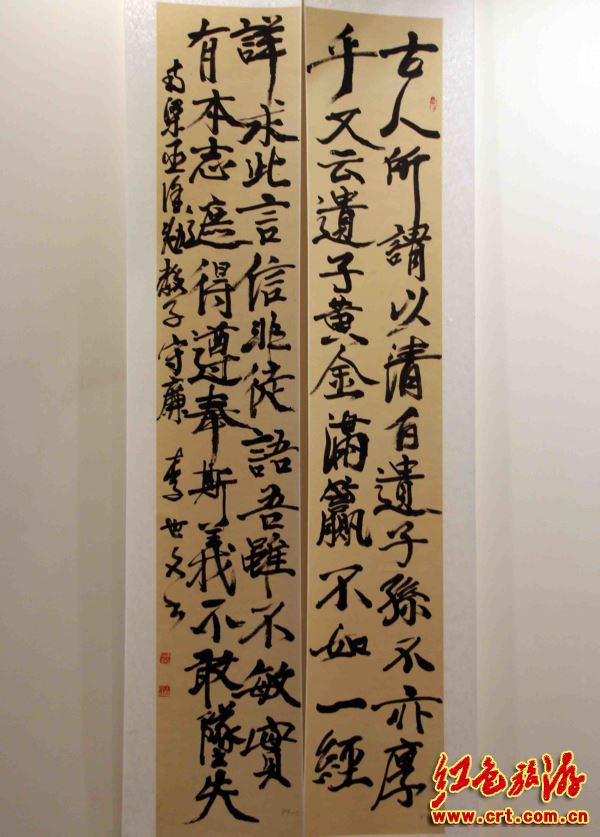 古人所謂以清白遺子孫不亦厚
乎又云遺子黃金滿籯不如一經
詳求此言信非徒語吾雖不敏實
有本志庶得遵奉斯義不敢墜失
南梁徐勉教子守廉 李世文书
红色旅游
www.crt.com.cn